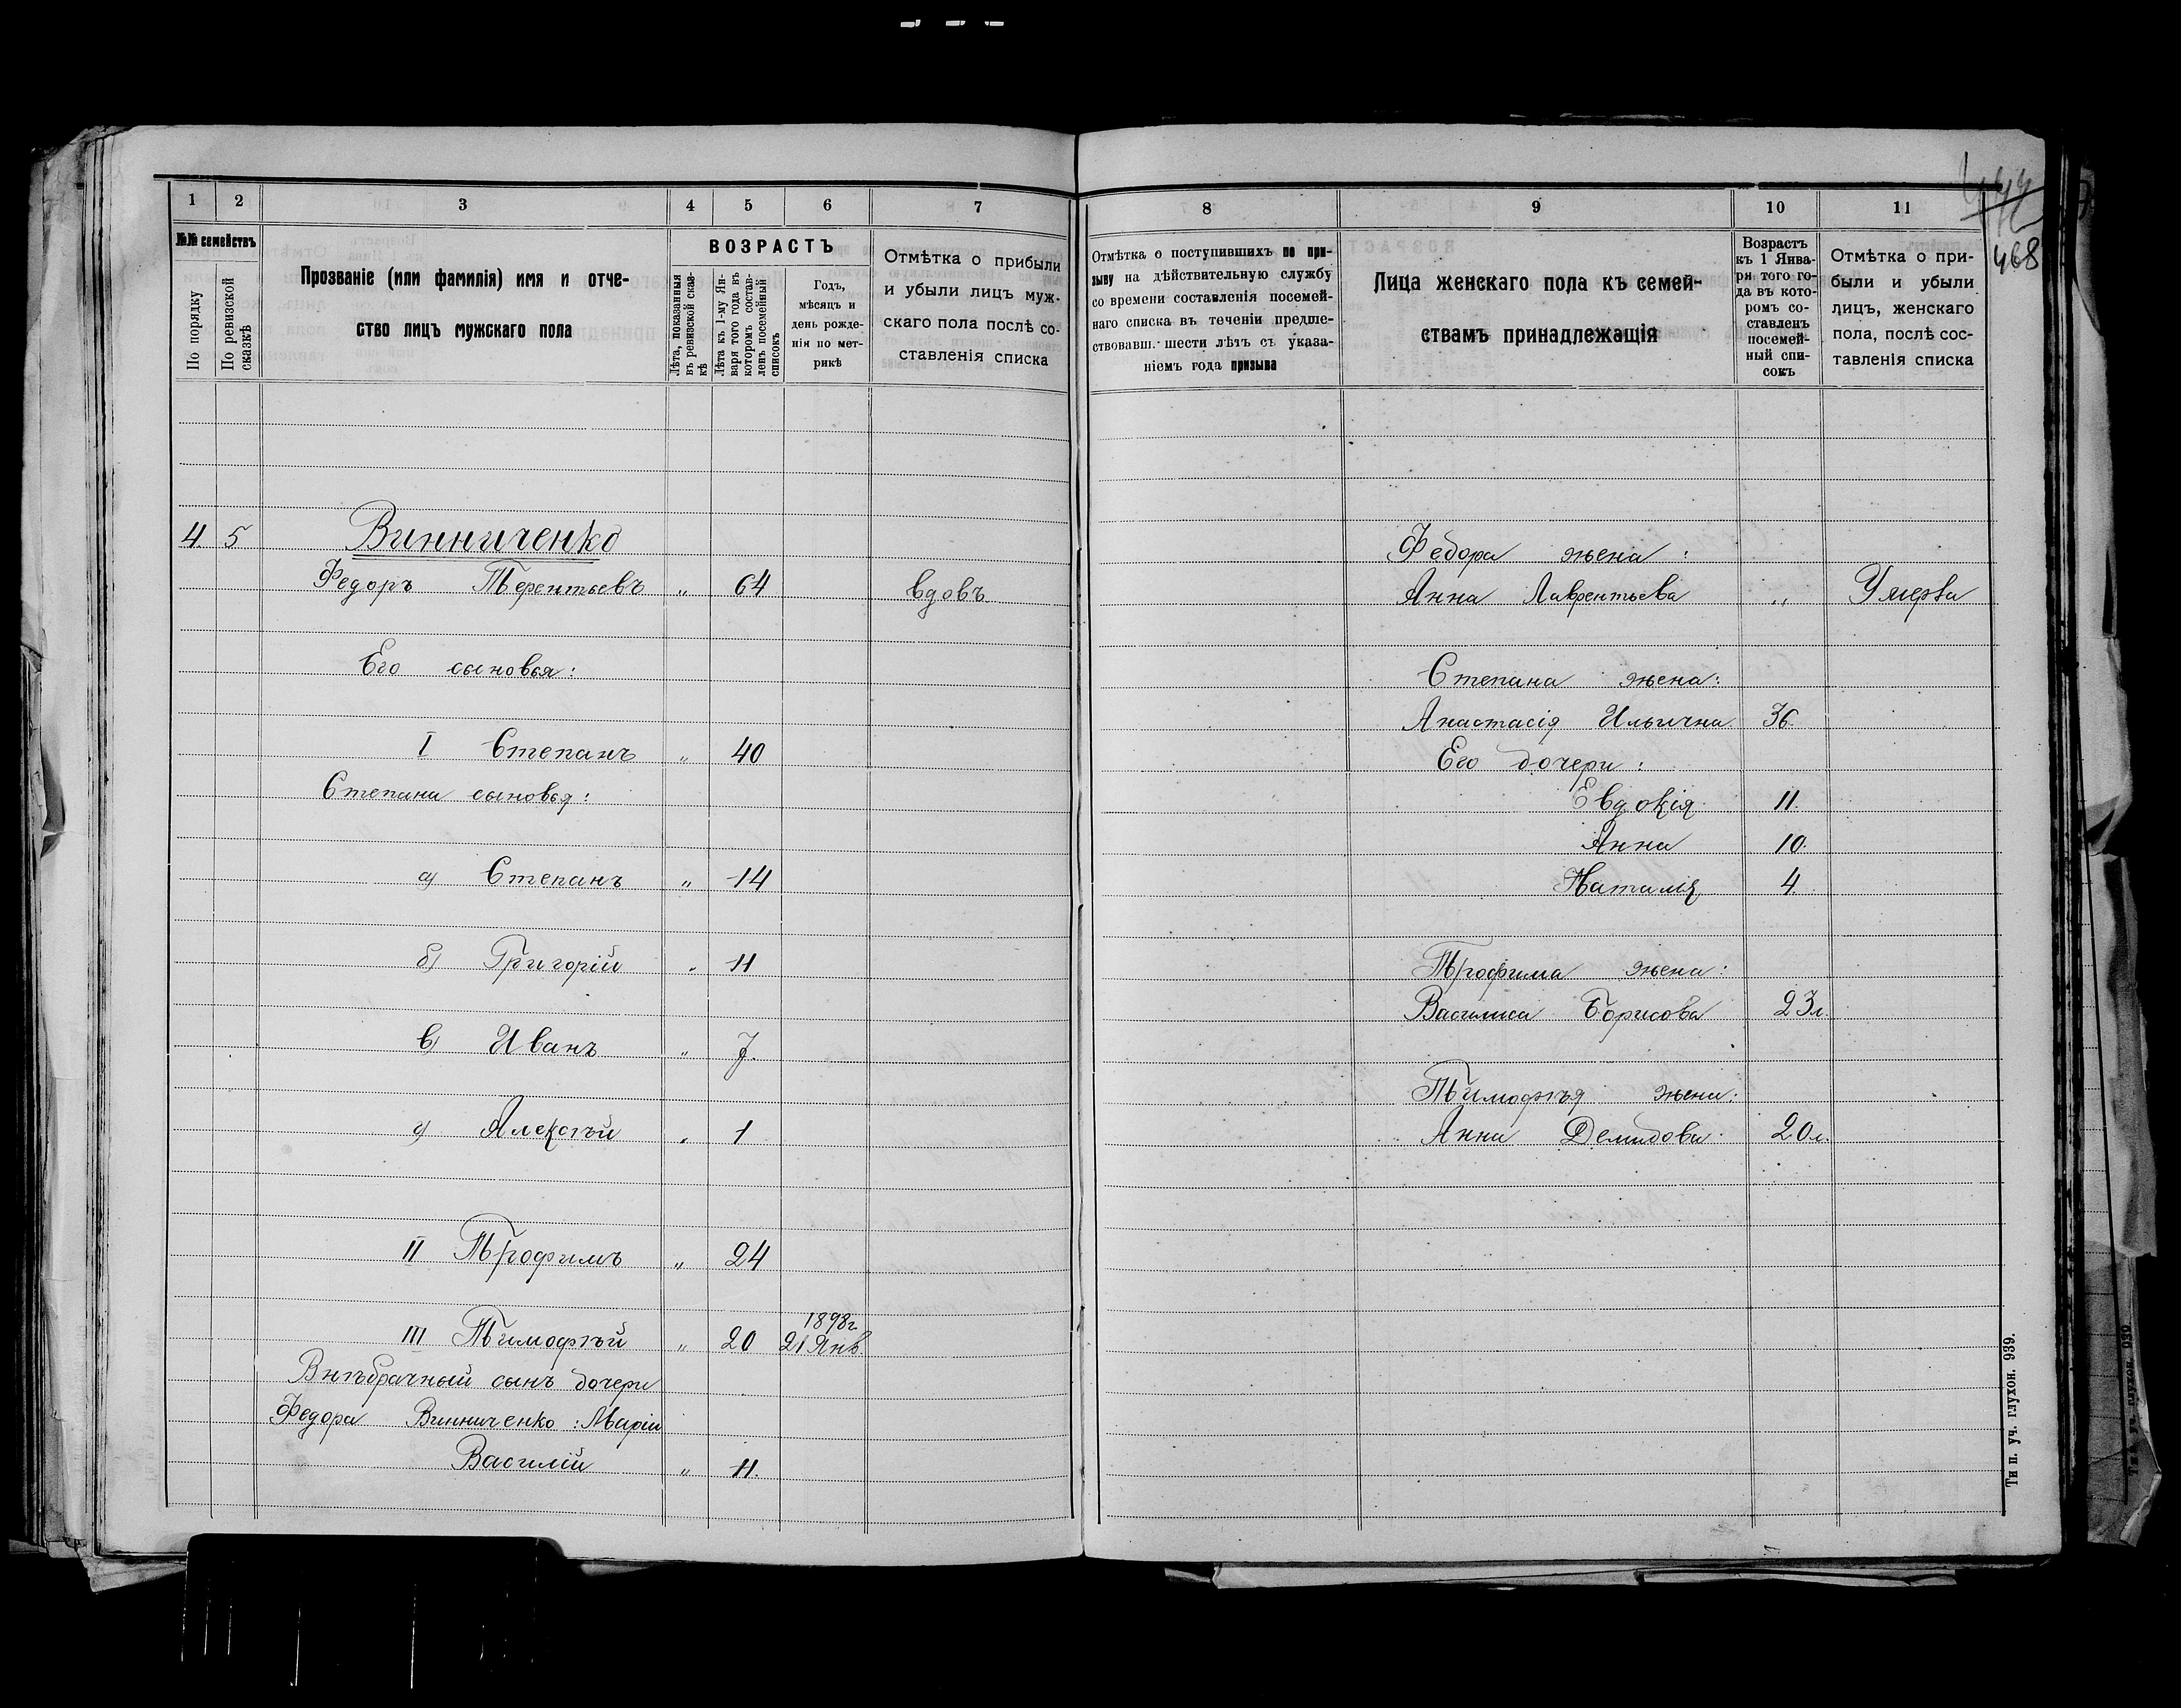 1 2 3 4 5 6 7
№№ семействъ
По порядку
По ревизской сказкѣ
Прозваніе (или фамилія) имя и отче-
ство лицъ мужскаго пола
ВОЗРАСТЪ
Лѣта, показанныя
въ ревизской сказ-
кѣ
Лѣта къ 1-му Ян-
варя того года въ
котором состав-
ленъ посемейный
списокъ
Годъ,
мѣсяцъ и
день рожде-
нія по мет-
рикѣ
Отмѣтка о прибыли
и убыли лицъ муж-
скаго пола послѣ со-
ставленія списка
4. 5 Винниченко
Федоръ Терентьевъ „ 64 вдовъ
Его сыновья:
I Степанъ „ 40
Степана сыновья:
а) Степанъ „ 14
б) Григорій „ 11
в) Иванъ „ 7.
г) Алексѣй „ 1
II Трофимъ „ 24
1898г.
III Тимофѣй „ 20 21 Янв.
Внѣбрачный сынъ дочери
Федора Винниченко: Маріи
Василій „ 11.
8 9 10 11
468
Отмѣтка о поступившихъ по при-
зыву на дѣйствительную службу
со времени составленія посемей-
наго списка въ теченіи предше-
ствовавш. шести лѣтъ съ указа-
ніемъ года призыва
Лица женскаго пола къ семей-
ствамъ принадлежащія
Возрастъ
къ 1 Янва-
ря того го-
да въ кото-
ромъ со-
ставленъ
посемей-
ный спи-
сокъ
Отмѣтка о при-
были и убыли
лицъ, женскаго
пола, послѣ сос-
тавленія списка
Федора жена:
Анна Лаврентьева „ Умерла
Степана жена:
Анастасія Ильична 36.
Его дочери:
Евдокія 11.
Анна 10.
Наталія 4.
Трофима жена:
Василиса Борисова 23л.
Тимофѣя жена:
Анна Демидова 20л.
Тип. уч. глухон. 939.